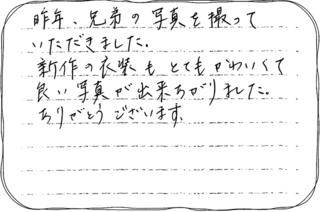 昨年、兄弟の写真を撮って
いただきました。
新作の衣装もとてもかわいくて
良い写真が出来あがりました。
ありがとうございます。